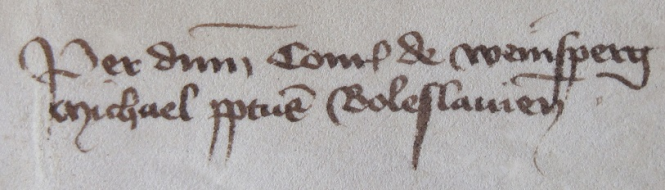 Per dnm Conr de Weinsperg
Michael pptus Boleslauien